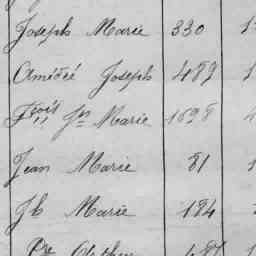 Joseph Marie 330
Amédéé Joseph 483
Fçois Jn Marie 1698
Jean Marie 81
Jh Marie 184
Pre